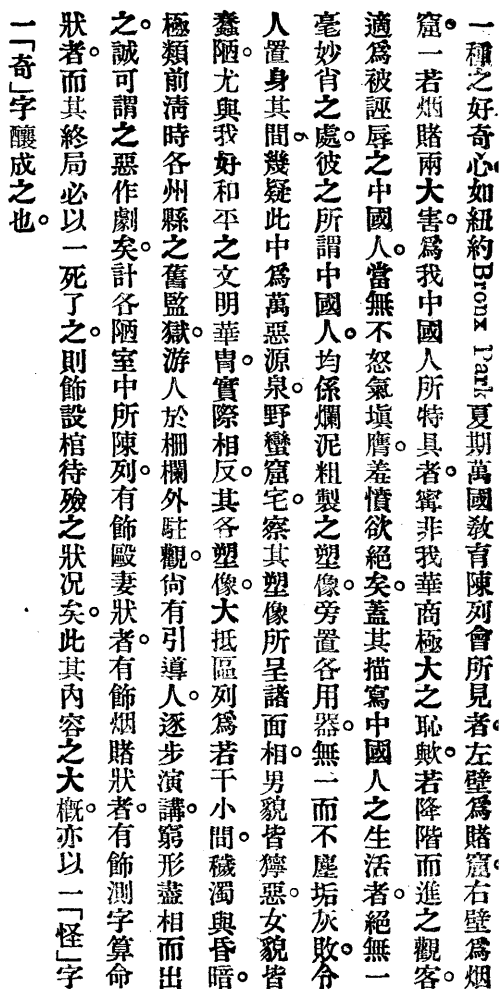 一種之好奇心如紐約Bronx Park夏期萬國教育陳列會所見者左壁爲賭窟右壁爲烟
窟一若烟賭兩大害爲我中國人所特具者甯非我華商極大之恥歟若降階而進之觀客
適爲被誣辱之中國人當無不怒氣塡膺羞憤欲絕矣蓋其描寫中國人之生活者絕無一
毫妙肖之處彼之所謂中國人均係爛泥粗製之塑像旁置各用器無一而不塵垢灰敗令
人置身其間幾疑此中爲萬惡源泉野蠻窟宅察其塑像所呈諸面相男貌皆獰惡女貌皆
蠢陋尤與我好和平之文明華胄實際相反其各塑像大抵區列爲若干小間穢濁與昏暗
極類前淸時各州縣之舊監獄游人於柵欄外駐觀尙有引導人逐步演講窮形盡相而出
之誠可謂之惡作劇矣計各陋室中所陳列有飾毆妻狀者有飾烟賭狀者有飾測字算命
狀者而其終局必以一死了之則飾設棺待殮之狀况矣此其內容之大槪亦以一「怪」字
一「奇」字釀成之也